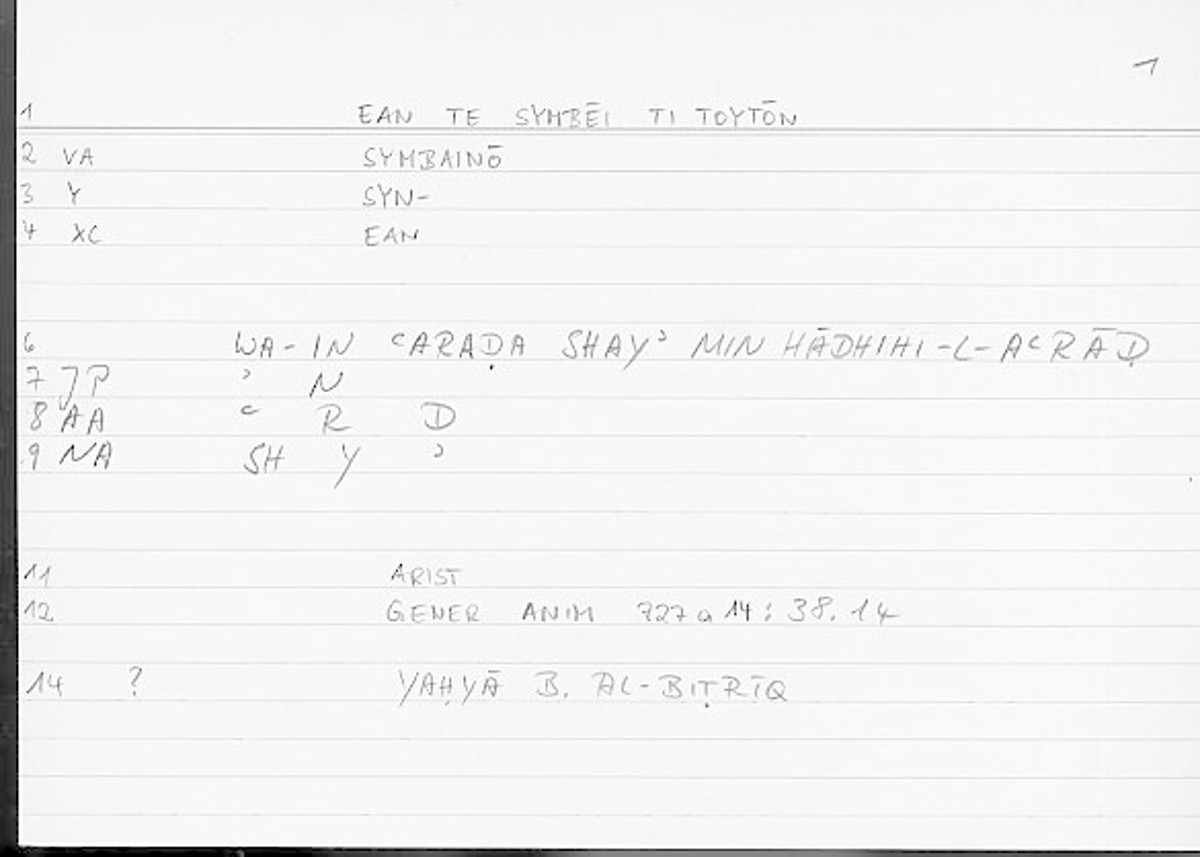 1
1 EAN TE SYMBĒI TI TOYTŌN
2 VA SYMBAINŌ
3 Y SYN-
4 XC EAN
6 WA-IN ʿARAḌA SHAYʾ MIN HĀDHIHI-L-AʿRĀḌ
7 JP ʾ N
8 AA ʿ R D
9 NA SH Y ʾ
11 ARIST
12 GENER ANIM 727a14; 38.14
14 ? YAḤYĀ B. AL-BIṬRĪQ